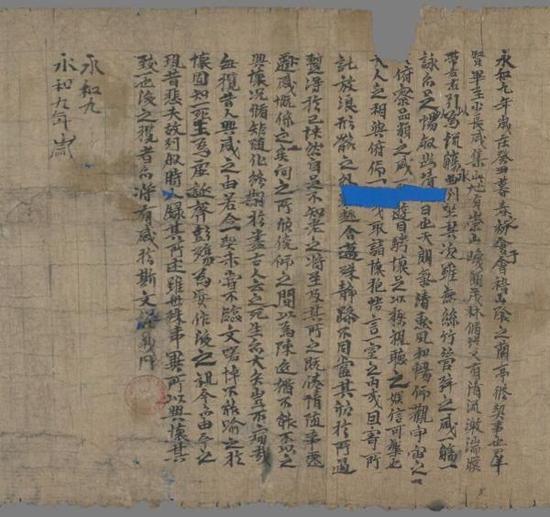 永和九年歲在癸丑暮春之初會于會稽山陰之蘭亭脩禊事也群
賢畢至少長咸集此地有崇山峻領茂林脩竹又有清流激湍暎
帶左右引以爲流觴曲水列坐其次雖無絲竹管弦之盛一觴一
詠亦足以暢敘幽情是日也天朗氣清惠風和暢仰觀宇宙之
俯察品類之盛遊目騁懷足以極視聽之娛信可樂也
夫人之相與俯仰一或取諸懷抱悟言一室之內或因寄所
託放浪形骸之外趣舍萬殊靜躁不同當其欣於所遇
暫得於己快然自足不知老之將至及其所之既倦情隨事遷
感慨係之矣向之所欣俛仰之間以爲陳迹猶不能不以之
興懷況脩短隨化終期於盡古人云之死生亦大矣豈不痛哉
每攬昔人興感之由若合一契未嘗不臨文嗟悼不能喻之於
懷固知一死生爲虛誕齊彭殤爲妄作後之視今亦由今之
視昔悲夫故列敘時人錄其所述雖世殊事異所以興懷其
致一也後之覽者亦將有感於斯文
永和九
永和九年歲